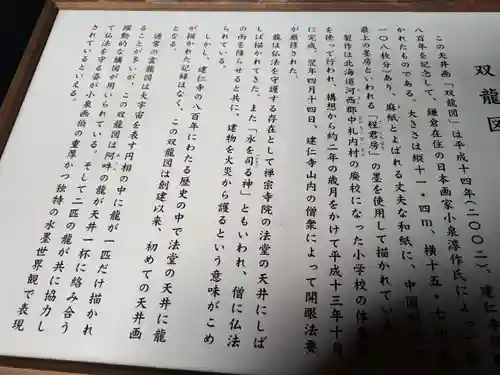 双龍図
この天井画「双龍図」は平成十四年(二〇〇二)、建仁寺
八百年を記念して、鎌倉在住の日本画家小泉淳作氏によって
かれたものである。大きさは縦十一・四m、横十五・七m
一〇八枚分)あり、麻紙とよばれる丈夫な和紙に、中国
最上の墨房といわれる「程君房」の墨を使用して描かれてい
製作は北海道河西郡中札内村の廃校になった小学校の体
を使って行われ、構想から約二年の歳月をかけて平成十三年十月
に完成。翌年四月十四日、建仁寺山内の僧衆によって開眼法要
が厳修された。
龍は仏法を守護する存在として禅宗寺院の法堂の天井にしば
しば描かれてきた。また「水を司る神」ともいわれ、僧に仏法
の雨を降らせると共に、建物を火災から護るという意味がこめ
られている。
しかし、建仁寺の八百年にわたる歴史の中で法堂の天井に龍
が描かれた記録はなく、この双龍図は創建以来、初めての天井画
となる。
通常の雲龍図は大宇宙を表す円相の中に龍が一匹だけ描かれ
ることが多いが、この双龍図は阿吽の龍が天井一杯に絡み合う
躍動的な構図が用いられている。そして二匹の龍が共に協力し
て仏法を守る姿が小泉画伯の重厚かつ独特の水墨世界観で表現
されているといえる。